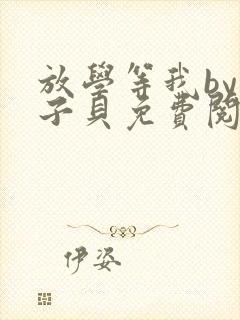 放學等我by
子貝免費閱
伊姿